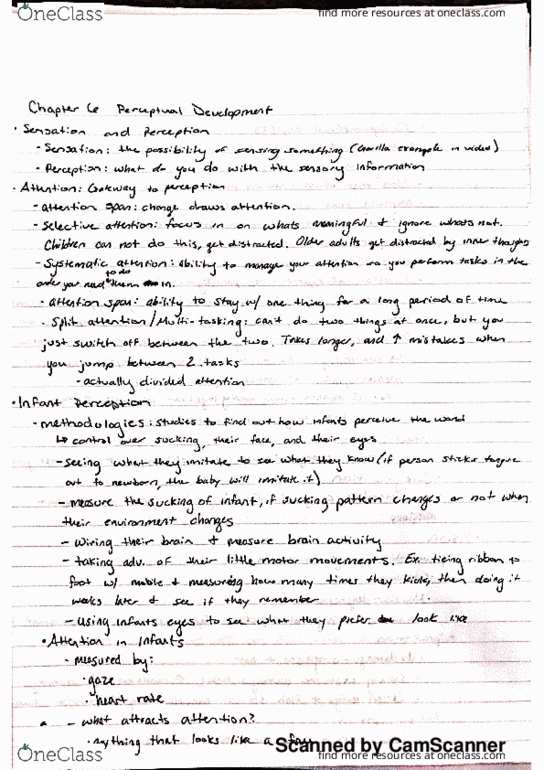 OneClass
find more resources at oneclass.com
Chapter 6 Perceptual Development
· Sensation and Perception
- Sensation: the possibility of sensing something (Gorilla example in video)
- Perception: what do you do with the sensory information
· Attention: Gateway to perception
- attention span: change draws attention.
- Selective attention: focus in on whats meaningful & ignore whats not.
Children can not do this, get distracted. Older adults get distracted by inner thoughts
- Systematic attention: ability to manage your attention so you perform tasks in the
order you need to do them in.
- attention span: ability to stay w/ one thing for a long period of time
· Split attention / Multi-tasking: can't do two things at once, but you
just switch off between the two. Takes longer, and ↑ mistakes when
you jump between 2 tasks
- actually divided attention
· Infant Perception
- methodologies: studies to find out how infants perceive the world
↳ control over sucking, their face, and their eyes
- seeing what they imitate to see what they know (if person sticks tongue
out to newborn, the baby will imitate it)
- measure the sucking of infant, if sucking pattern changes or not when
their environment changes
- wiring their brain & measure brain activity
- taking adv. of their little motor movements. Ex. tieing ribbon to
foot w/ mobile & measuring how many times they kick, then doing it
weeks later & see if they remember
- using infants eyes to see what they prefer look like
· Attention in Infants
· measured by:
· gaze
· heart rate
- what attracts attention?
· anything that looks like a
Scanned by CamScanner
OneClass
find more resources at oneclass.com